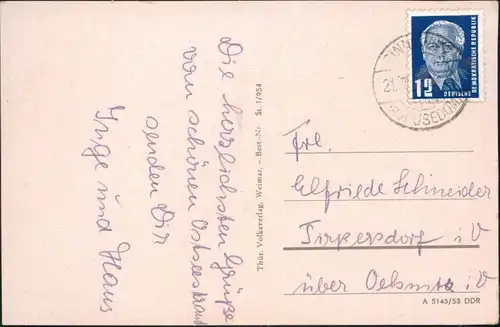 Die herzlichsten Grüße
vom schönen Ostseestrand
senden Dir
Inge und Haus
Thür. Volksverlag, Weimar. – Best.-Nr. St. 1/954
12
DEUTSCHE
DEMOKRATISCHE REPUBLIK
USEDOM
Frl.
Elfriede Schneider
Tirpersdorf i V
über Oelsnitz i V
A 5145/53 DDR